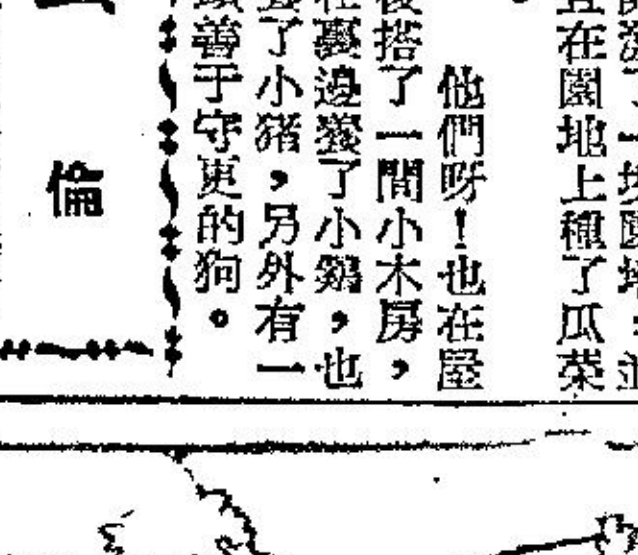 開濶了一塊園地，並
且在園地上種了瓜菜
他們呀！也在屋
後搭了一間小木房，
在裏邊養了小鷄，也
養了小猪，另外有一
頭善于守更的狗。
倫